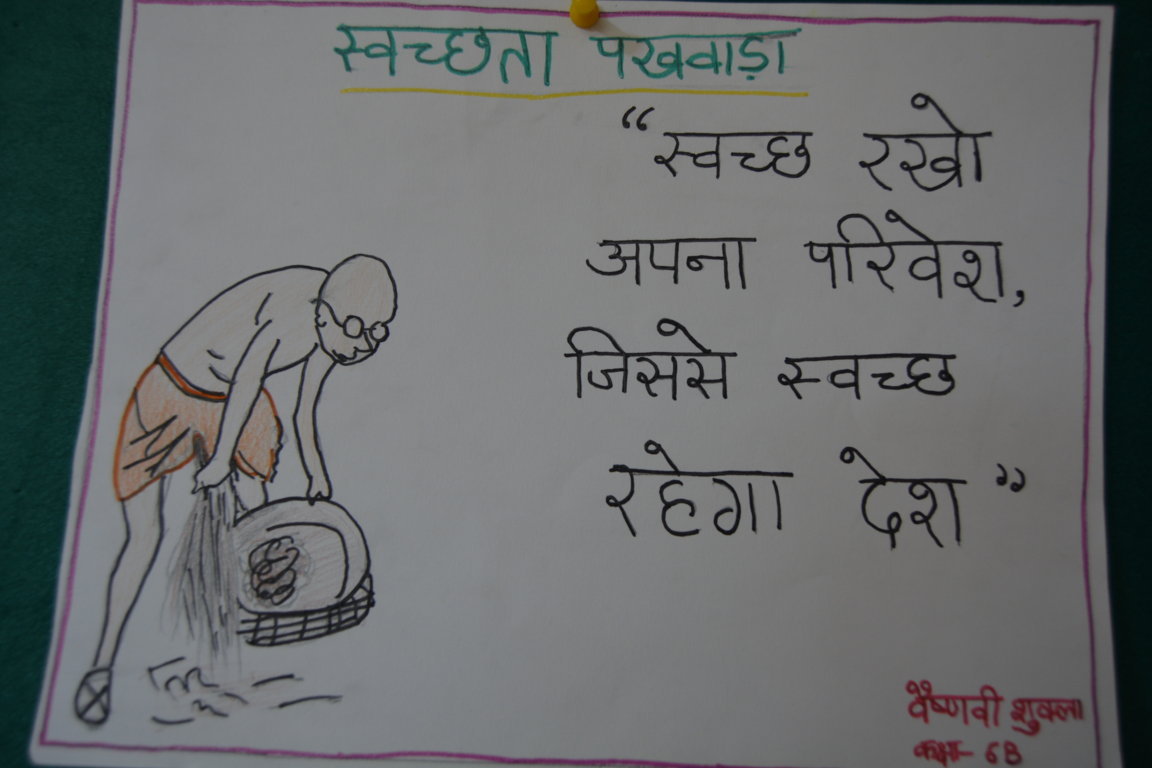 स्वच्छता पखवाड़ा
“स्वच्छ रखो
अपना परिवेश,
जिससे स्वच्छ
रहेगा देश”
वैष्णवी शुक्ला
कक्षा- 6B